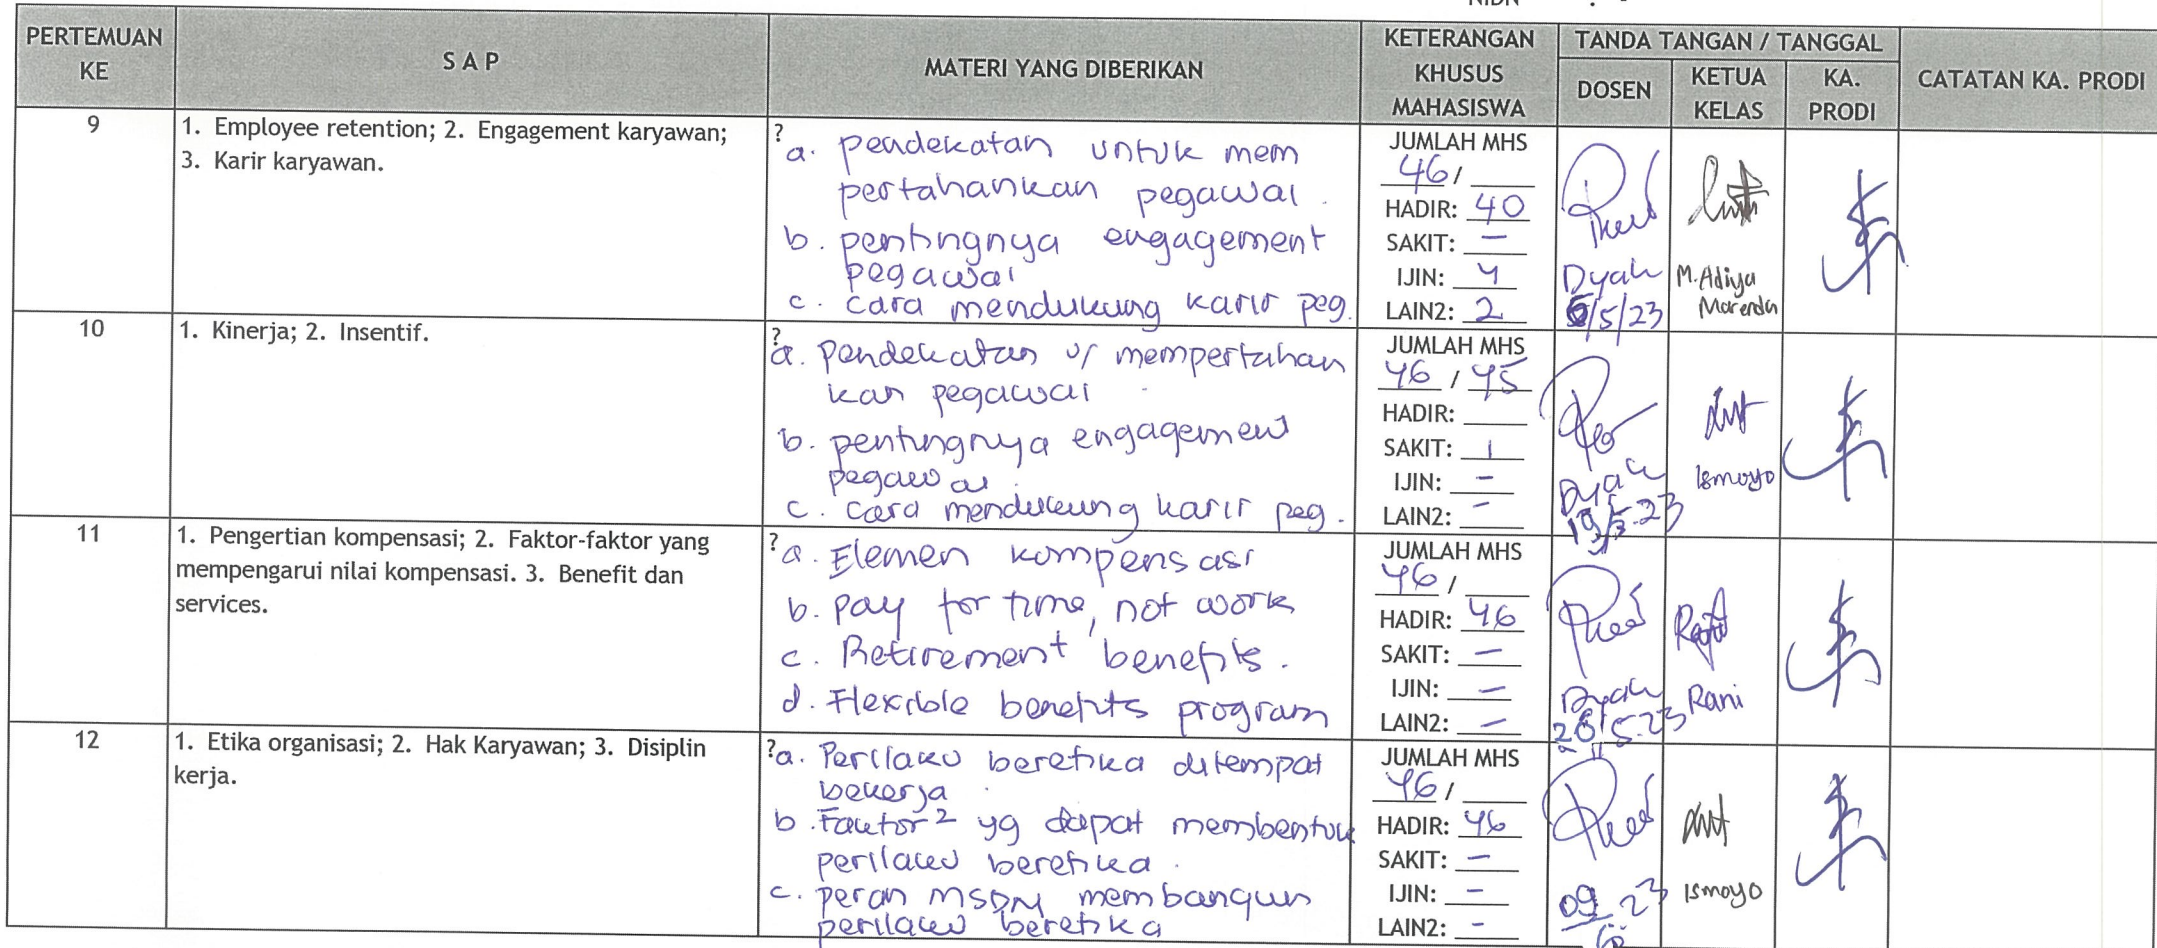 NIDN :
PERTEMUAN KE
S A P
MATERI YANG DIBERIKAN
KETERANGAN KHUSUS MAHASISWA
TANDA TANGAN / TANGGAL
DOSEN
KETUA KELAS
KA. PRODI
CATATAN KA. PRODI
9
1. Employee retention; 2. Engagement karyawan;
3. Karir karyawan.
?
a. pendekatan untuk mem
pertahankan pegawai.
b. pentingnya engagement
pegawai
c. cara mendukung karir peg.
JUMLAH MHS
46 /
HADIR: 40
SAKIT: -
IJIN: 4
LAIN2: 2
Dyah
/5/23
M. Adiya
Marenda
10
1. Kinerja; 2. Insentif.
?
a. Pendekatan u/ mempertahan
kan pegawai
b. pentingnya engagement
pegawai
c. cara mendukung karir peg.
JUMLAH MHS
46 / 45
HADIR:
SAKIT: 1
IJIN: -
LAIN2: -
Dyah
19/5-23
Ismoyo
11
1. Pengertian kompensasi; 2. Faktor-faktor yang
mempengarui nilai kompensasi. 3. Benefit dan
services.
?
a. Elemen kompensasi
b. pay for time, not work
c. Retirement benefits.
d. Flexible benefits program
JUMLAH MHS
46 /
HADIR: 46
SAKIT: -
IJIN: -
LAIN2: -
Dyah
26/5-23
Rani
12
1. Etika organisasi; 2. Hak Karyawan; 3. Disiplin
kerja.
?
a. Perilaku beretika ditempat
bekerja
b. Faktor² yg dapat membentuk
perilaku beretika.
c. peran MSDM membangun
perilaku beretika
JUMLAH MHS
46 /
HADIR: 46
SAKIT: -
IJIN: -
LAIN2: -
09/6 23
Ismoyo